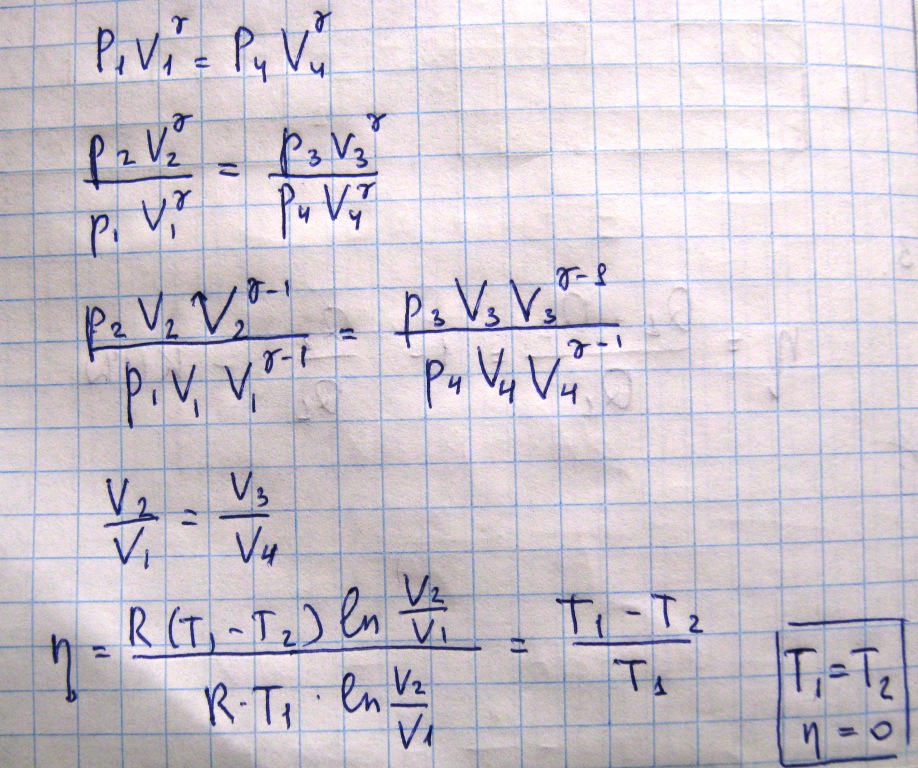 P₁V₁^γ = P₄V₄^γ
p₂V₂^γ / p₁V₁^γ = p₃V₃^γ / p₄V₄^γ
p₂V₂V₂^(γ-1) / p₁V₁V₁^(γ-1) = p₃V₃V₃^(γ-1) / p₄V₄V₄^(γ-1)
V₂/V₁ = V₃/V₄
η = R(T₁-T₂) ln V₂/V₁ / R·T₁·ln V₂/V₁ = T₁-T₂ / T₁
T₁=T₂
η=0